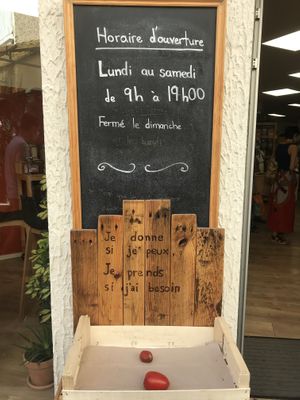 Horaire d'ouverture
Lundi au samedi
de 9h à 19h00
Fermé le dimanche
Je donne
si je peux,
Je prends
si j'ai besoin